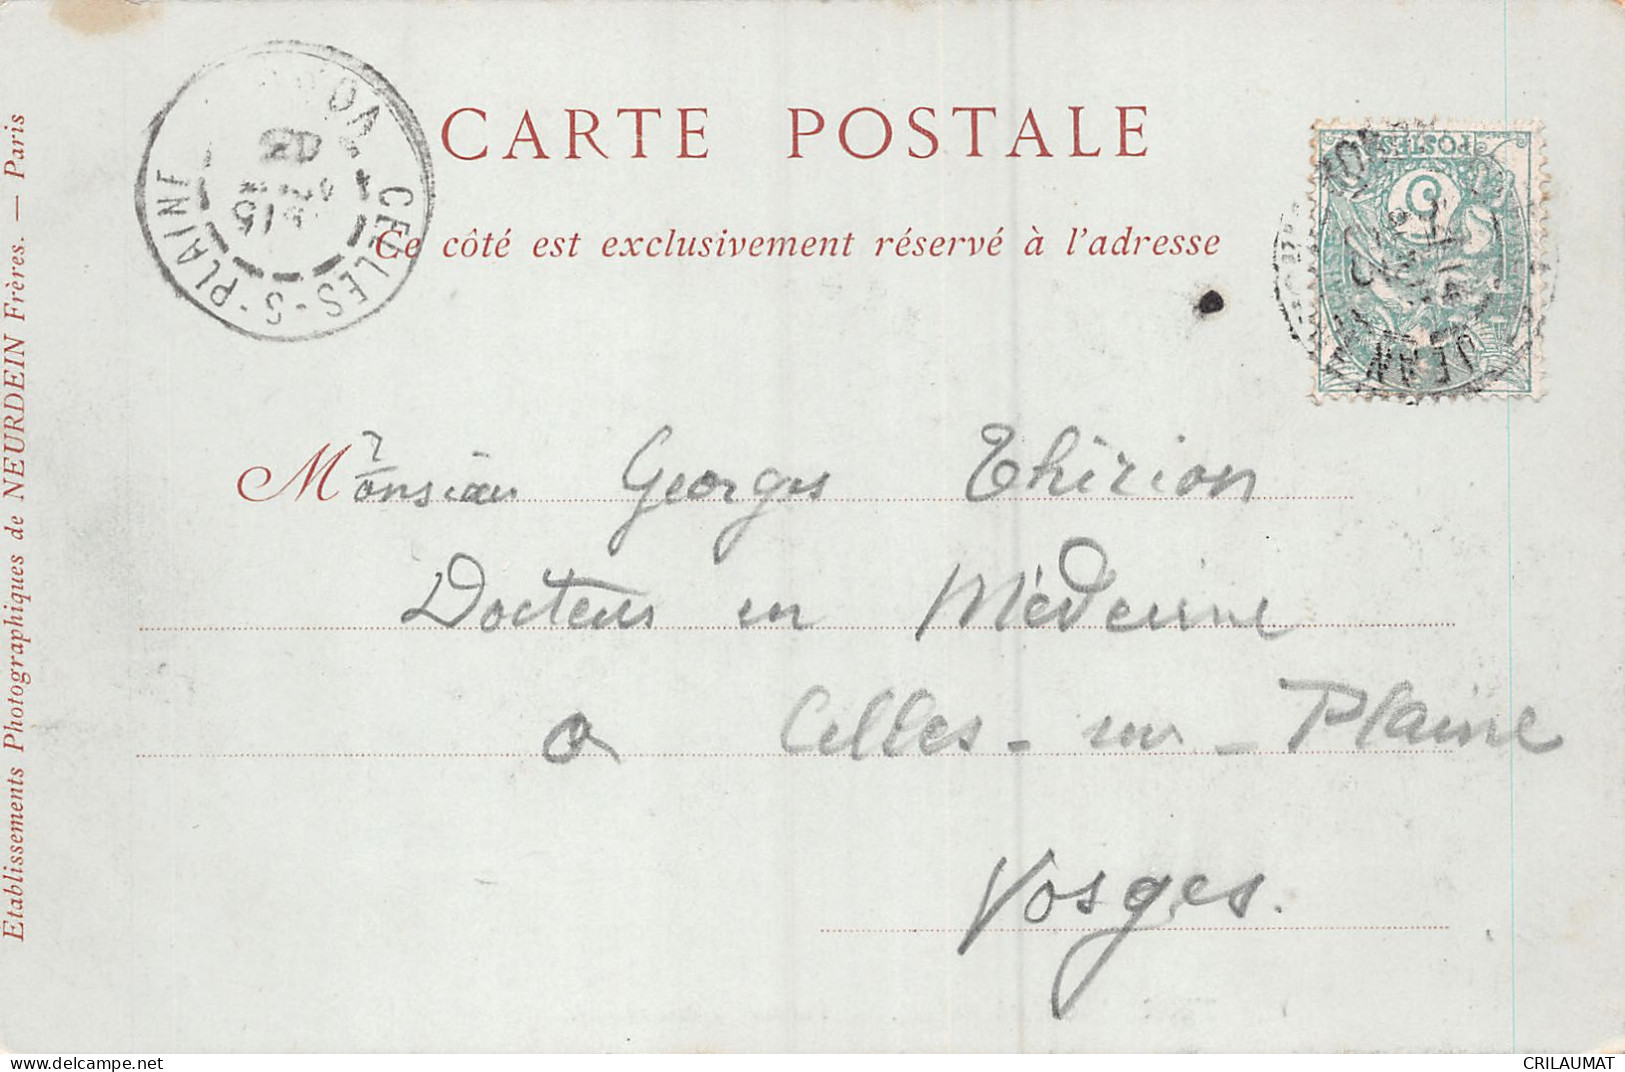 CARTE POSTALE
Ce côté est exclusivement réservé à l'adresse
Monsieur Georges Thirion
Docteur en Médecine
à Celles-sur-Plaine
Vosges.
Etablissements Photographiques de NEURDEIN Frères. — Paris
CELLES-S-PLAINE
15
POSTES
5
JEAN
CRILAUMAT